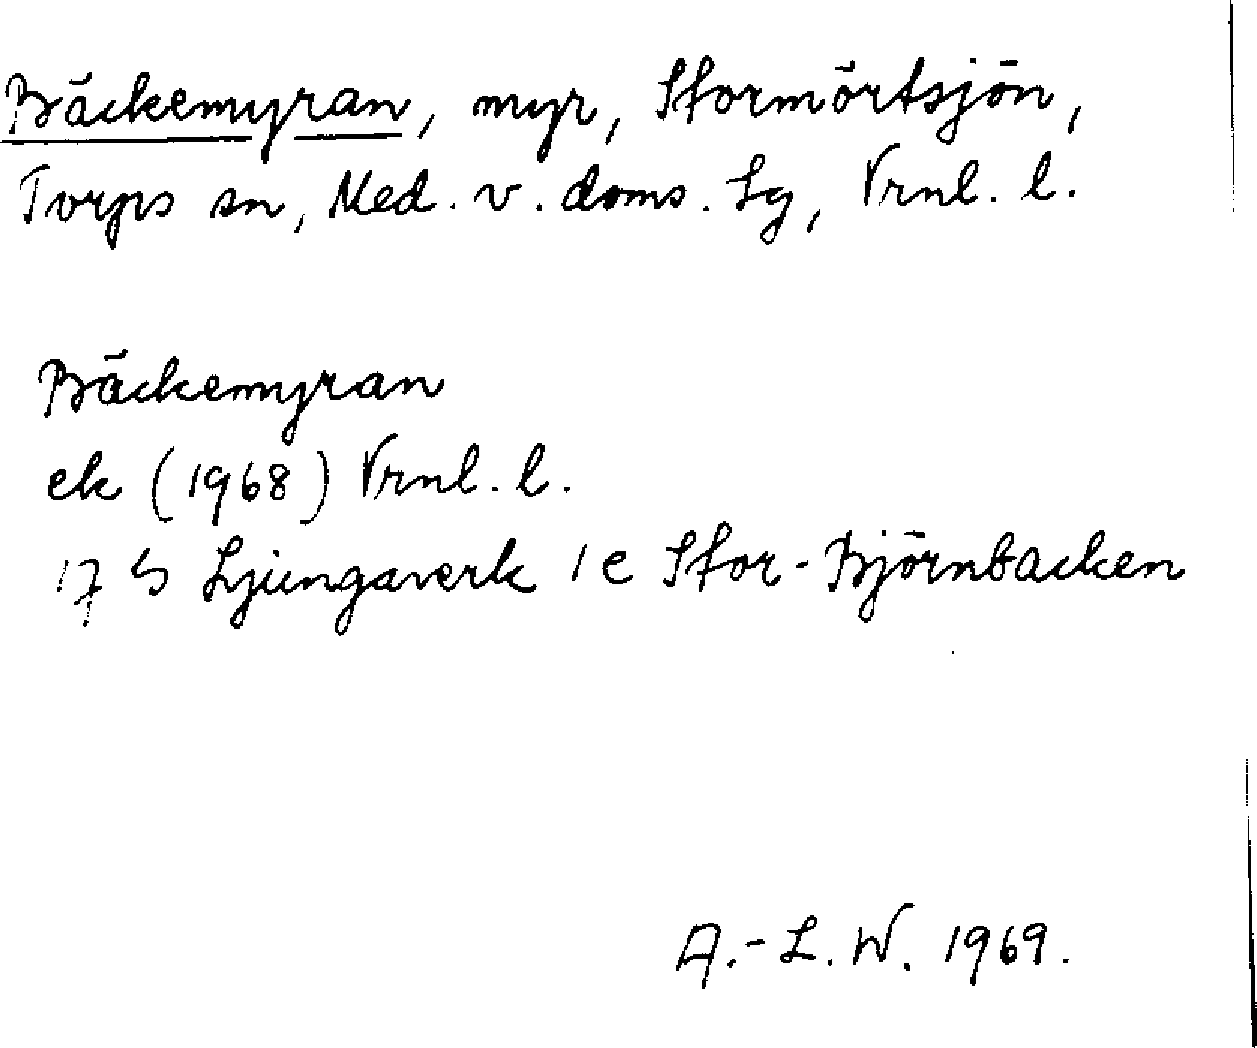 Bäckemyran, myr, Stormörtsjön,
Torps sn, Med. v. doms. Lg, Vrnl. l.
Bäckemyran
ek (1968) Vrnl. l.
17 G Ljungaverk 1 e Stor-Björnbacken
A.-L. W. 1969.